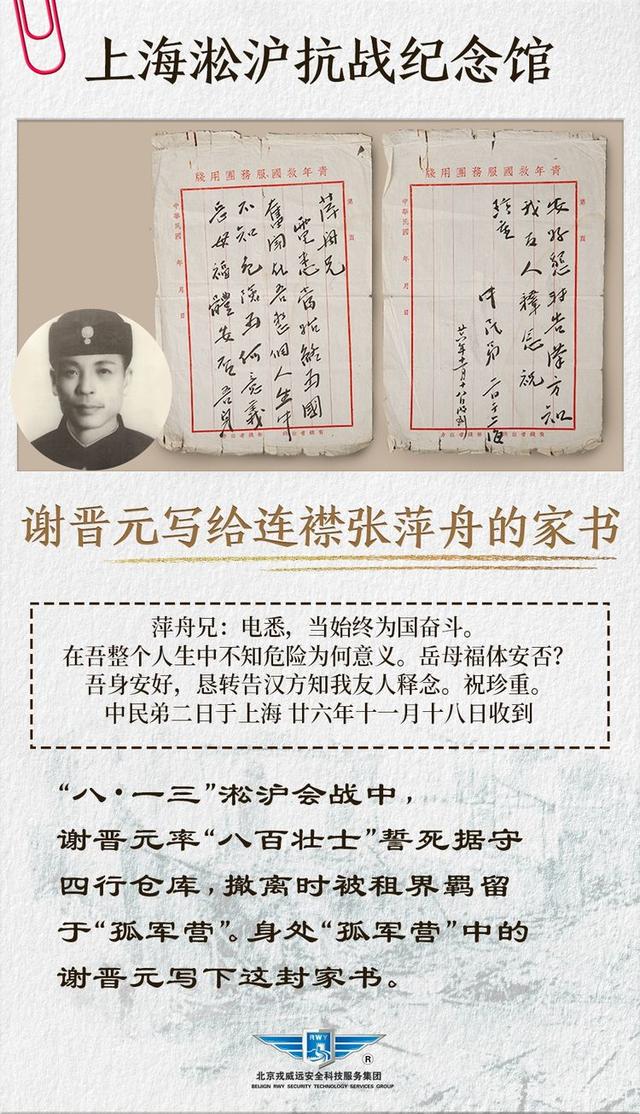 上海淞沪抗战纪念馆
青年救國服務團用牋
第 頁
萍舟兄
電悉當始終為國
奮鬥在吾整個人生中
不知危險為何意義
岳母福體安否吾身
中華民國 年 月 日
青年救國服務團用牋
第 頁
安好懇轉告漢方知
我友人釋念祝
珍重
中民弟 二日于上海
廿六年十一月十八日收到
中華民國 年 月 日
谢晋元写给连襟张萍舟的家书
萍舟兄：电悉，当始终为国奋斗。
在吾整个人生中不知危险为何意义。岳母福体安否？
吾身安好，恳转告汉方知我友人释念。祝珍重。
中民弟二日于上海 廿六年十一月十八日收到
“八·一三”淞沪会战中，
谢晋元率“八百壮士”誓死据守
四行仓库，撤离时被租界羁留
于“孤军营”。身处“孤军营”中的
谢晋元写下这封家书。
RWY
®
北京戎威远安全科技服务集团
BEIJIGN RWY SECURITY TECHNOLOGY SERVICES GROUP